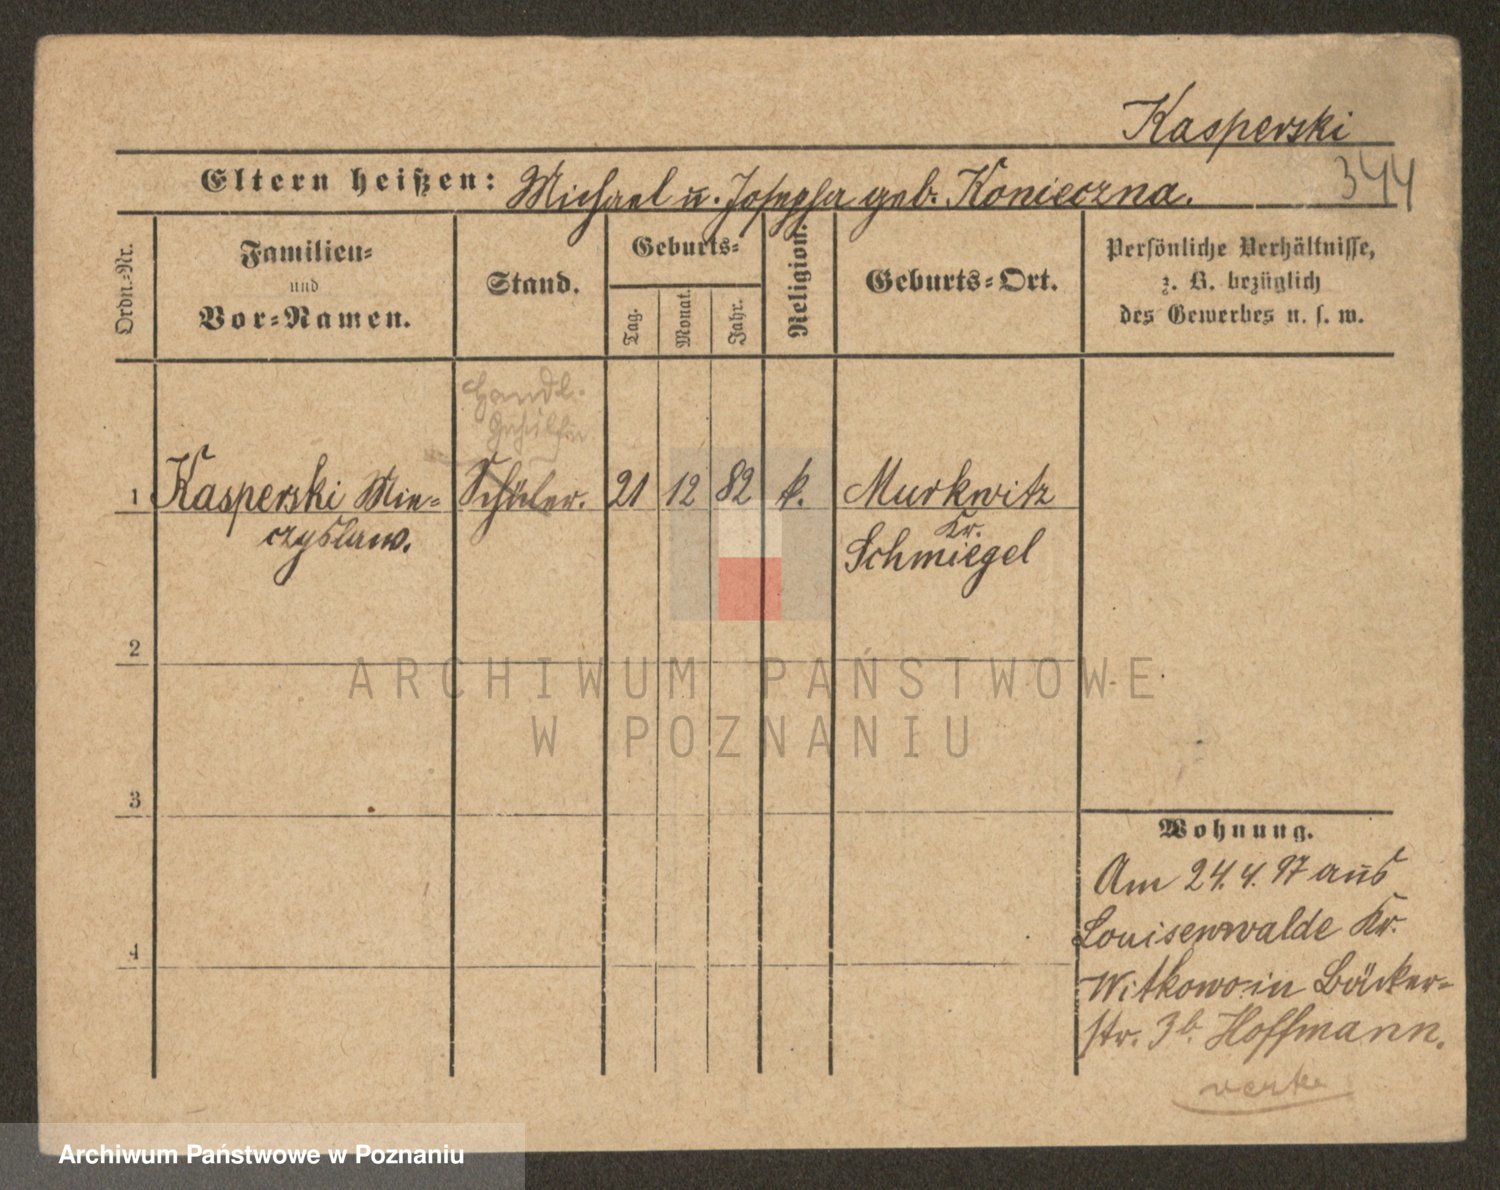 Kasperski
344
Eltern heißen: Michael u. Josepha geb. Konieczna.
Ordn.-Nr.
Familien-
und
Vor-Namen.
Stand.
Geburts-
Tag.
Monat.
Jahr.
Religion.
Geburts-Ort.
Persönliche Verhältnisse,
z. B. bezüglich
des Gewerbes u. s. w.
Handl.
Gehülfin
1 Kasperski Mie- Schüler. 21 12 82 k. Murkwitz
czyslaw. Kr.
Schmiegel
2
ARCHIWUM PAŃSTWOWE
W POZNANIU
3
Wohnung.
Am 24.4.97 aus
Louisenwalde Kr.
4
Witkowo in Bäcker-
str. 3b. Hoffmann.
Archiwum Państwowe w Poznaniu